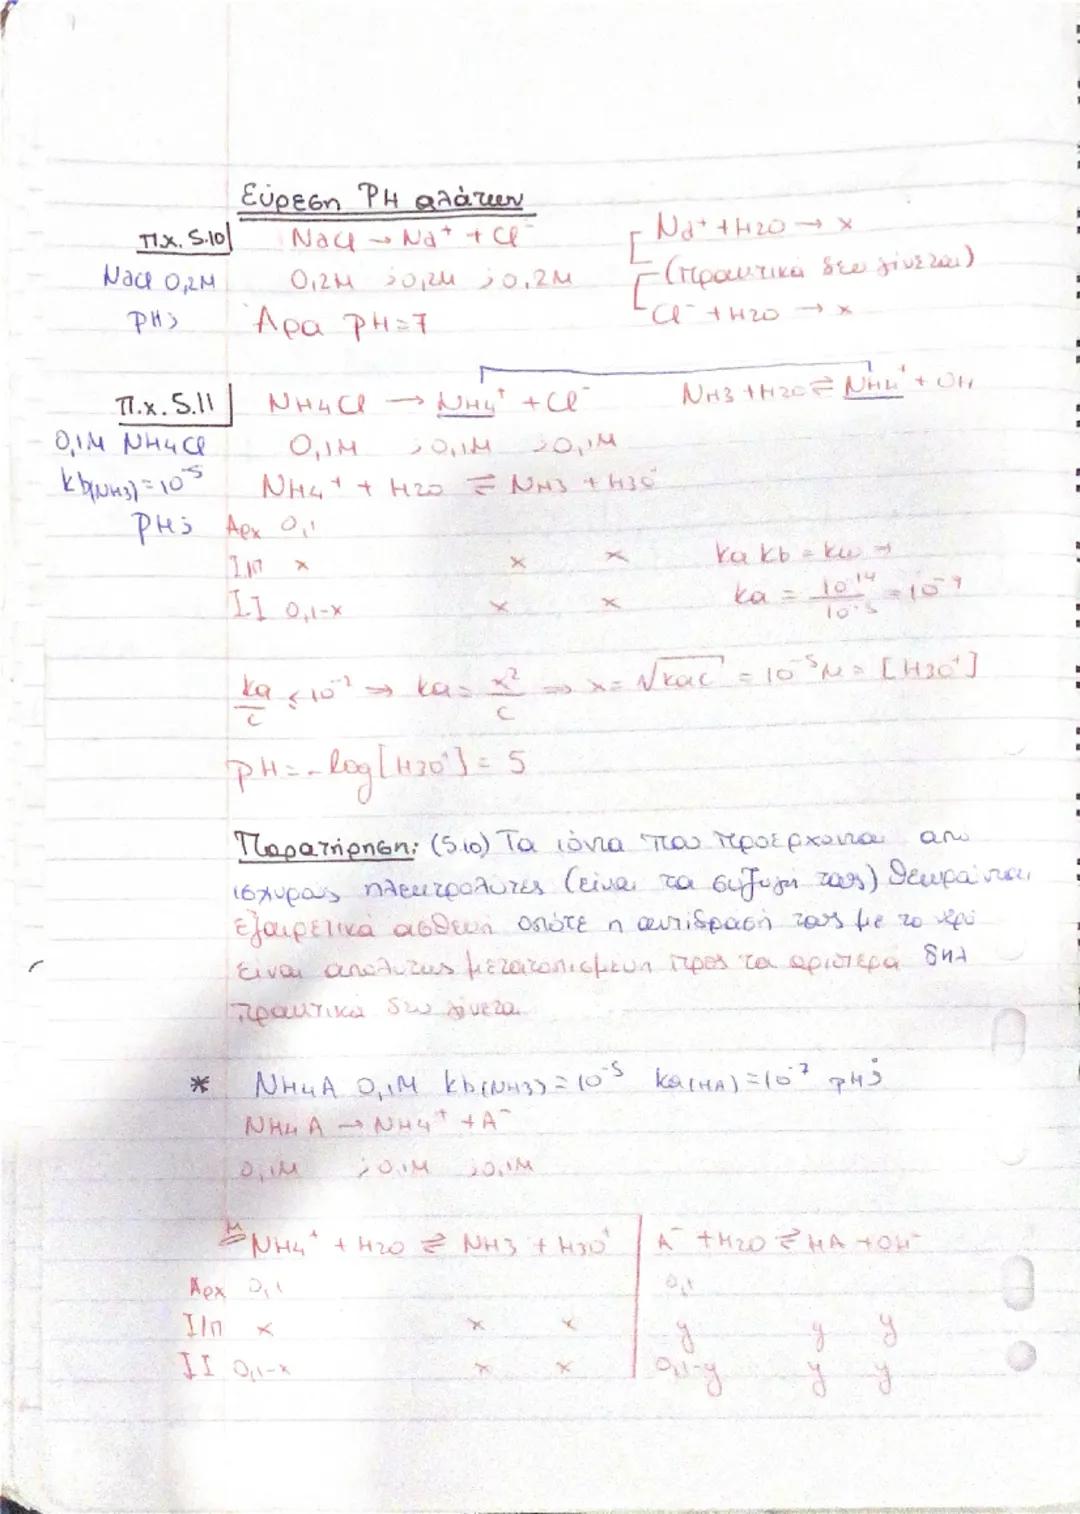 Εύρεση PH αλάτων
π.χ. 5.10 NaCl → Na⁺ + Cl⁻ Na⁺ + H2O → x
NaCl 0,2M 0,2M ; 0,2M ; 0,2M (πρακτικά δεν γίνεται)
PH; Άρα pH=7 Cl⁻ + H2O → x
π.χ. 5.11 NH4Cl → NH4⁺ + Cl⁻ NH3 + H2O ⇌ NH4⁺ + OH
0,1M NH4Cl 0,1M ; 0,1M ; 0,1M
kb(NH3) = 10⁻⁵ NH4⁺ + H2O ⇌ NH3 + H3O⁺
PH; Αρχ 0,1
Ι/Π x x x ka kb = kw ⇒
ΙΙ 0,1-x x x ka = 10⁻¹⁴/10⁻⁵ = 10⁻⁹
ka/c < 10⁻² ⇒ ka = x²/c ⇒ x = √kac = 10⁻⁵M = [H3O⁺]
pH = -log[H3O⁺] = 5
Παρατήρηση: (5.10) Τα ιόντα που προέρχονται από
ισχυρούς ηλεκτρολύτες (είναι τα συζυγή τους) θεωρούνται
εξαιρετικά ασθενή οπότε η αντίδρασή τους με το νερό
είναι απολύτως μετατοπισμένη προς τα αριστερά δηλ
πρακτικά δεν γίνεται
* NH4A 0,1M kb(NH3) = 10⁻⁵ ka(HA) = 10⁻⁷ pH;
NH4A → NH4⁺ + A⁻
0,1M ; 0,1M ; 0,1M
M NH4⁺ + H2O ⇌ NH3 + H3O⁺ A⁻ + H2O ⇌ HA + OH⁻
Αρχ 0,1 0,1
Ι/Π x x x y y y
ΙΙ 0,1-x x x 0,1-y y y